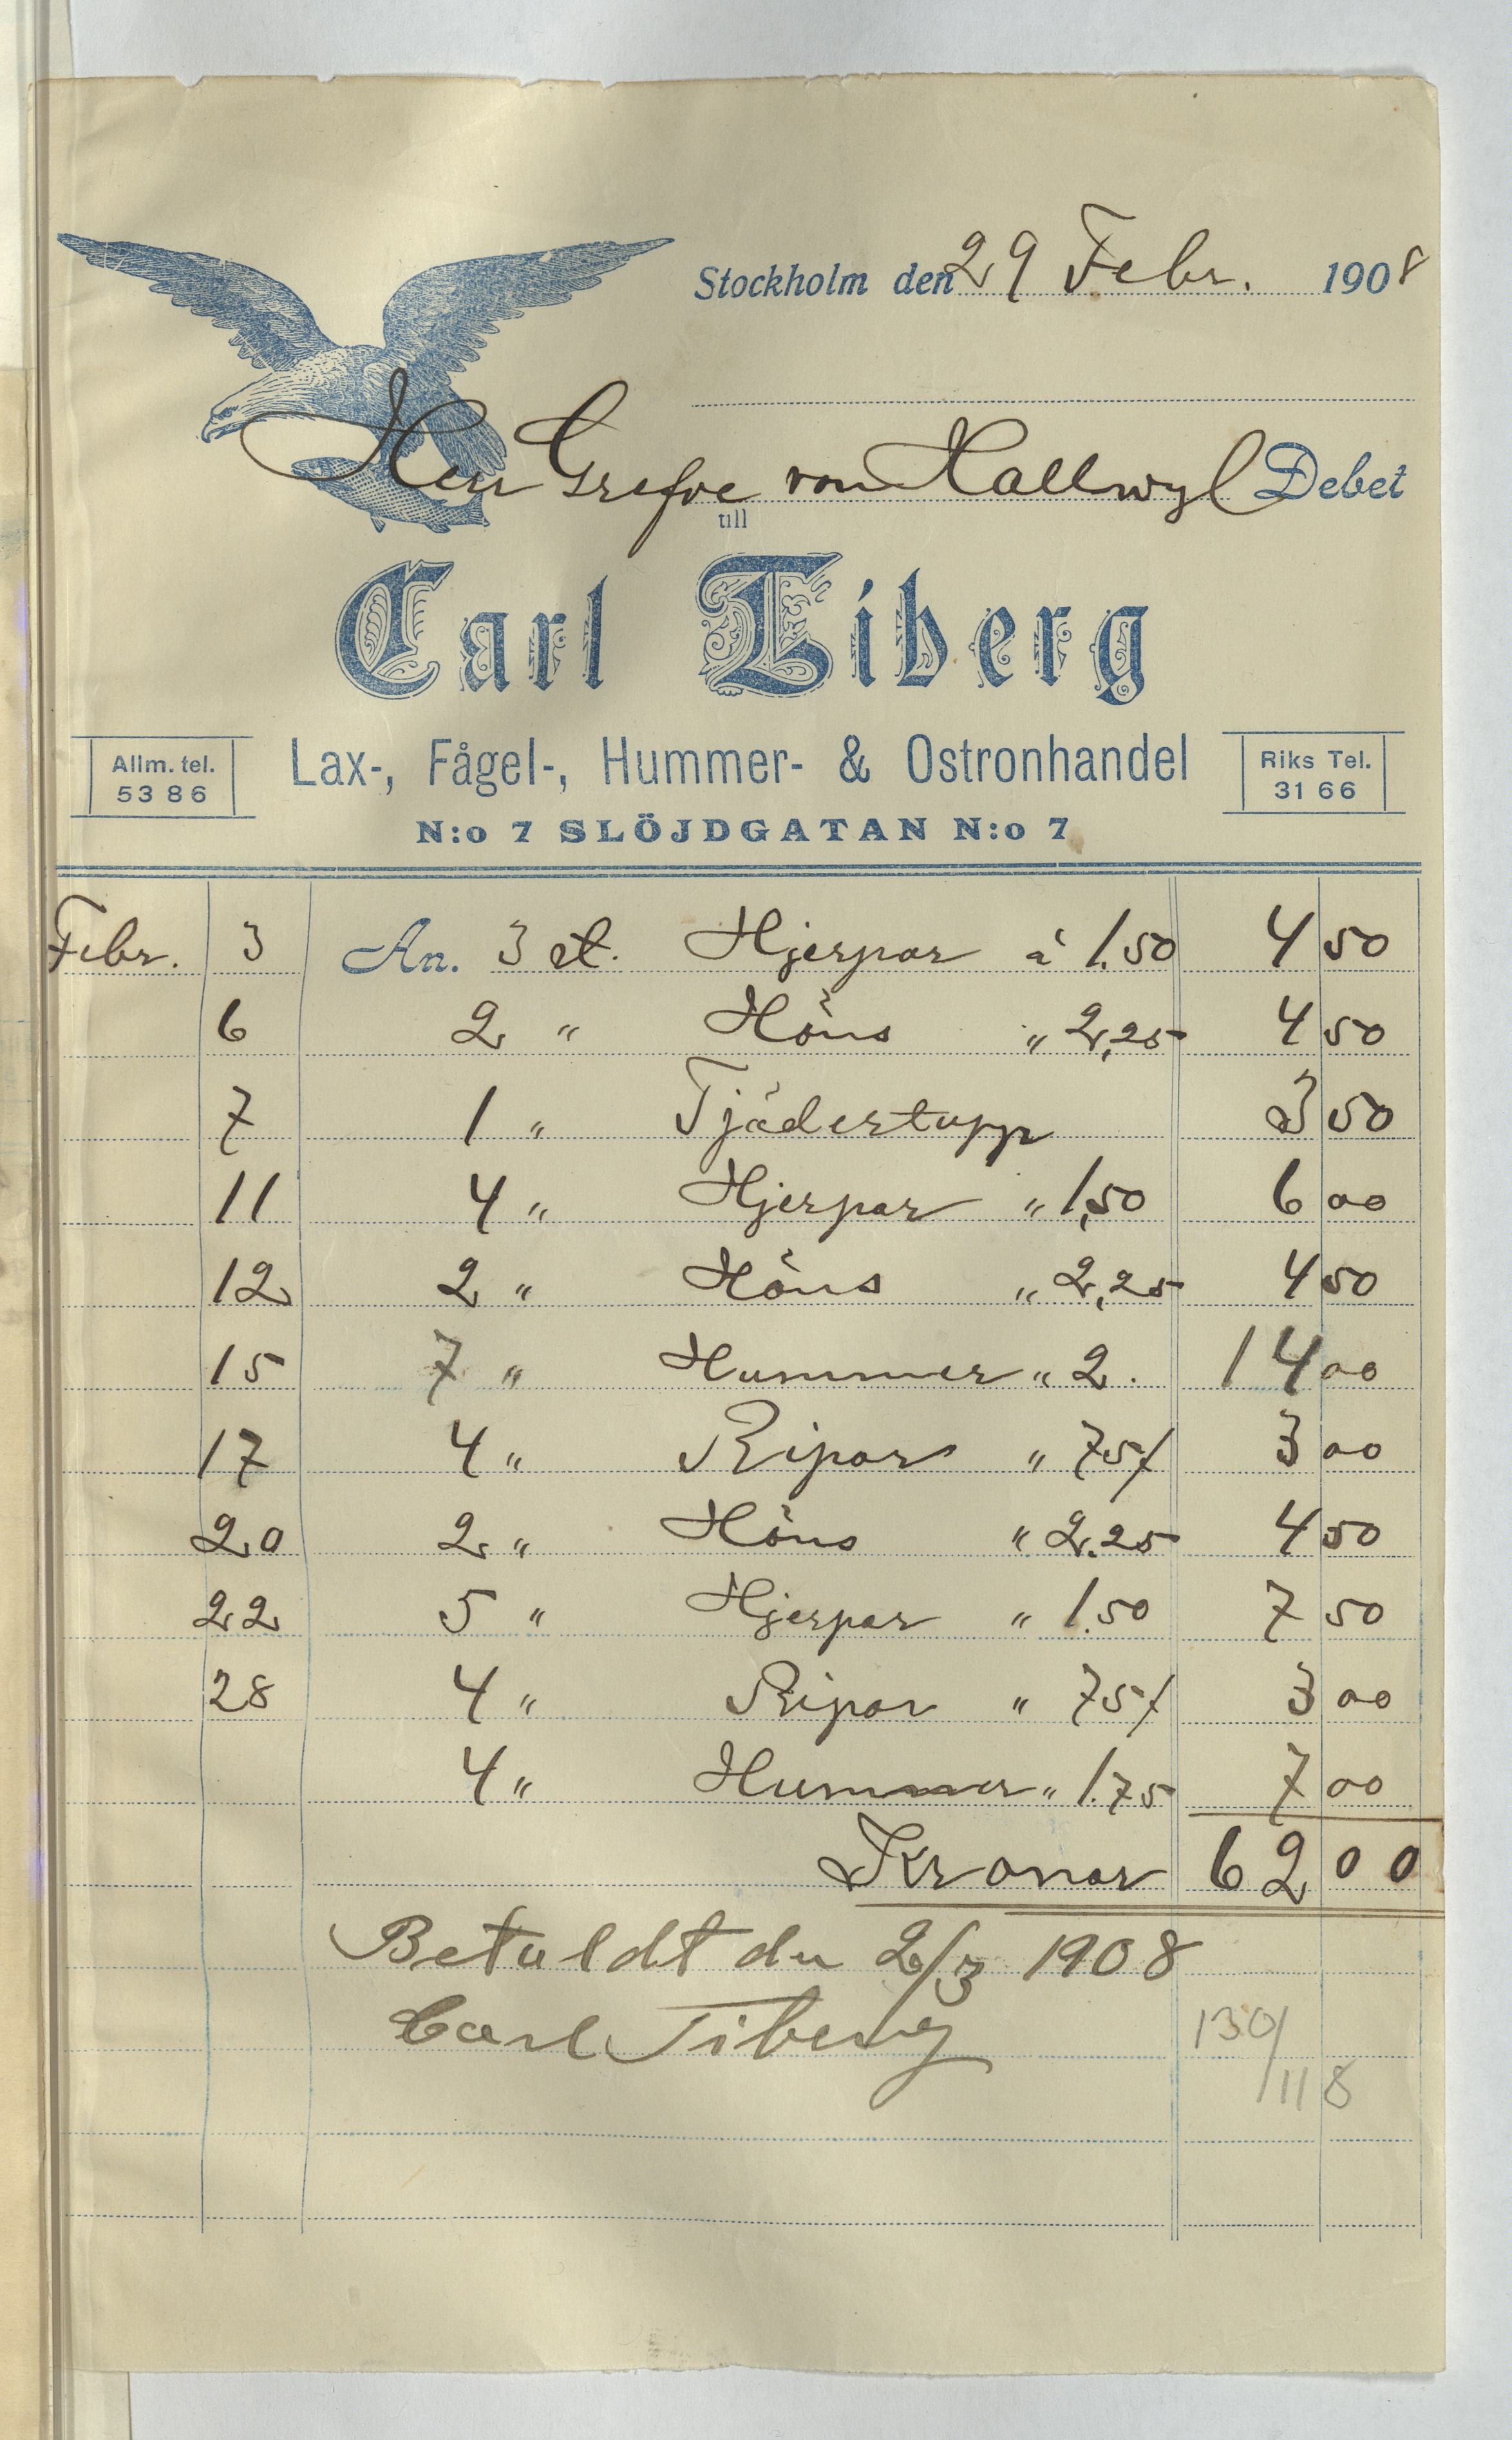 Stockholm den 29 Febr. 1908
Herr Grefve von Hallwyl Debet
till
Carl Tiberg
Allm. tel. 5386
Lax-, Fågel-, Hummer- & Ostronhandel
Riks Tel. 3166
N:o 7 SLÖJDGATAN N:o 7
Febr. 3 An. 3 st. Hjerpar à 1.50 4 50
6 2 " Höns " 2,25 4 50
7 1 " Tjädertupp 3 50
11 4 " Hjerpar " 1,50 6 00
12 2 " Höns " 2,25 4 50
15 7 " Hummer " 2. 14 00
17 4 " Ripor " 75/ 3 00
20 2 " Höns " 2.25 4 50
22 5 " Hjerpar " 1.50 7 50
28 4 " Ripor " 75/ 3 00
4 " Hummer " 1.75 7 00
Kronor 62 00
Betaldt den 2/3 1908
Carl Tiberg
130/
/118